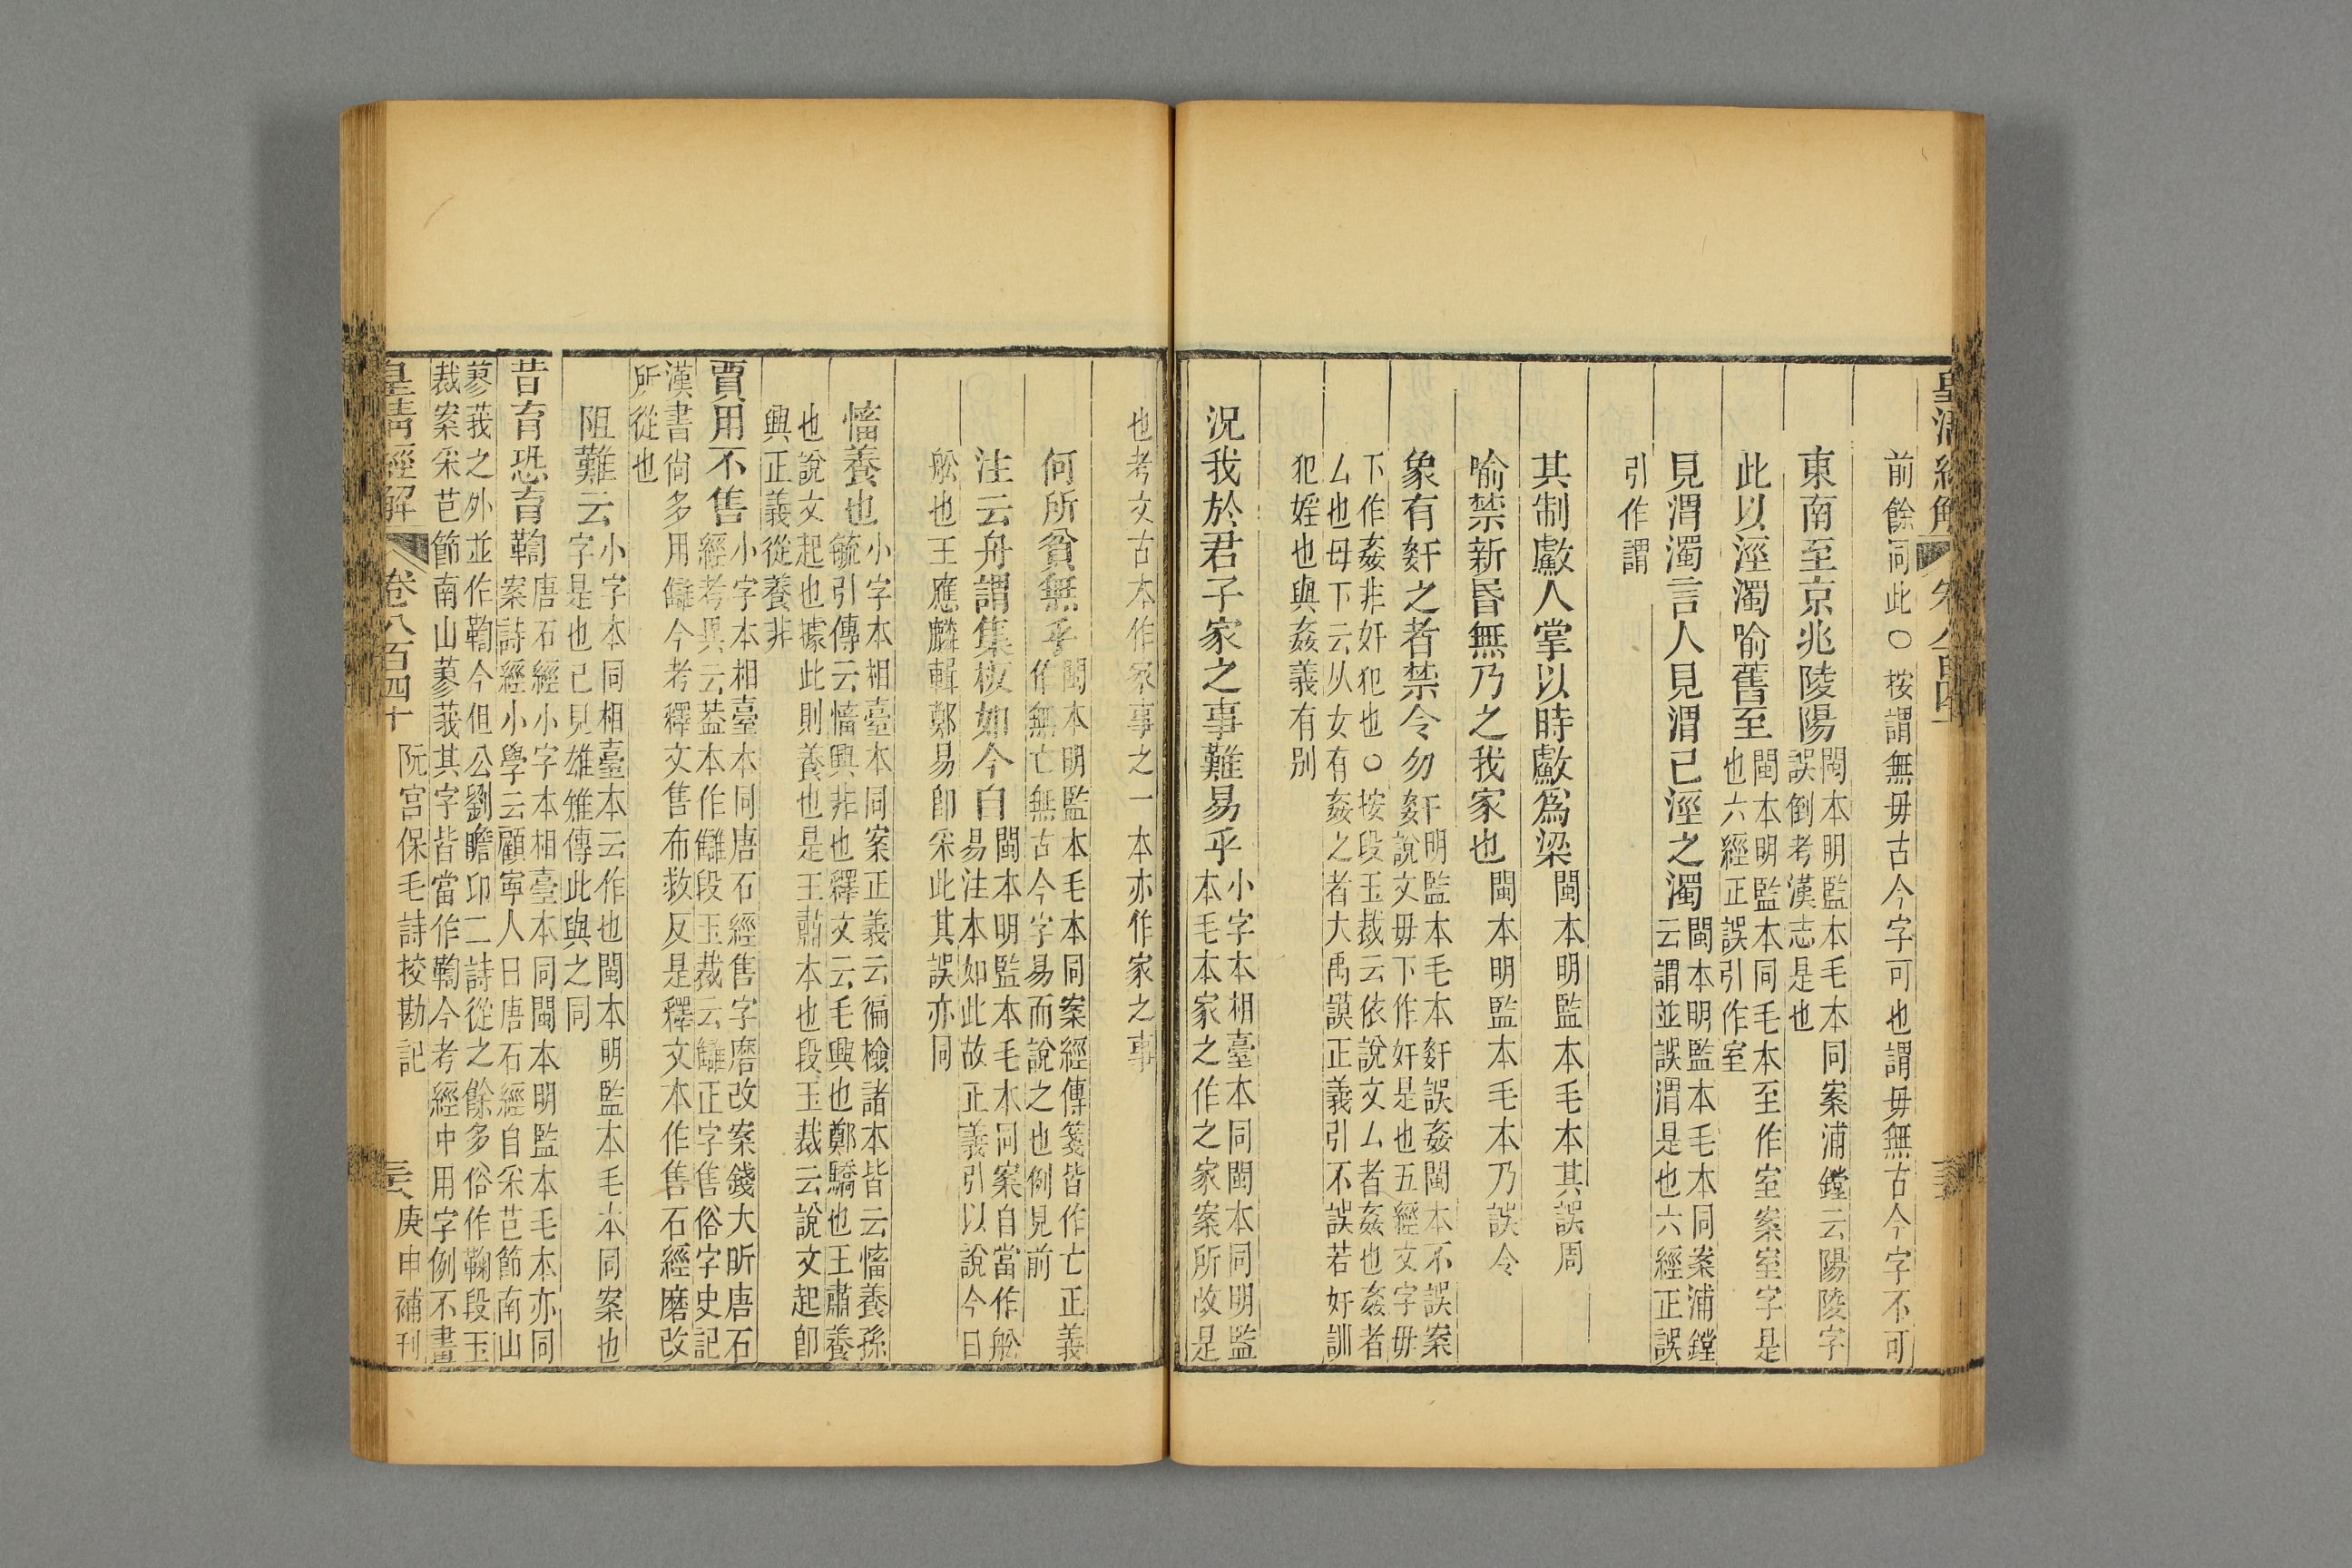 前餘同此○按謂無毋古今字可也謂毋無古今字不可
東南至京兆陵陽
閩本明監本毛本同案浦鏜云陽陵字
誤倒考漢志是也
此以涇濁喻舊至
閩本明監本同毛本至作室案室字是
也六經正誤引作室
見渭濁言人見渭已涇之濁
閩本明監本毛本同案浦鏜
云謂並誤渭是也六經正誤
引作謂
其制𩼪人掌以時𩼪爲梁閩本明監本毛本其誤周
喻禁新昏無乃之我家也閩本明監本毛本乃誤令
象有姧之者禁令勿姦
明監本毛本姧誤姦閩本不誤案
說文毋下作奸是也五經文字毋
下作姦非奸犯也○按段玉裁云依說文厶者姦也姦者
厶也毋下云从女有姦之者大禹謨正義引不誤若奸訓
犯婬也與姦義有別
況我於君子家之事難易乎
小字本相臺本同閩本同明監
本毛本家之作之家案所改是
也考文古本作家事之一本亦作家之事
何所貧無乎
閩本明監本毛本同案經傳箋皆作亡正義
作無亡無古今字易而說之也例見前
注云舟謂集板如今自
閩本明監本毛本同案自當作舩
易注本如此故正義引以說今日
舩也王應麟輯鄭易卽采此其誤亦同
慉養也
小字本相臺本同案正義云徧檢諸本皆云慉養孫
毓引傳云慉興非也釋文云毛興也鄭驕也王肅養
也說文起也據此則養也是王肅本也段玉裁云說文起卽
興正義從養非
賈用不售
小字本相臺本同唐石經售字磨改案錢大昕唐石
經考異云葢本作讎段玉裁云讎正字售俗字史記
漢書尙多用讎今考釋文售布救反是釋文本作售石經磨改
所從也
阻難云
小字本同相臺本云作也閩本明監本毛本同案也
字是也已見雄雉傳此與之同
昔育恐育鞫
唐石經小字本相臺本同閩本明監本毛本亦同
案詩經小學云顧寧人日唐石經自采芑節南山
蓼莪之外並作鞫今但公劉瞻卬二詩從之餘多俗作鞠段玉
裁案采芑節南山蓼莪其字皆當作鞫今考經中用字例不畫
皇清經解 卷八百四十 阮宮保毛詩挍勘記 庚申補刊